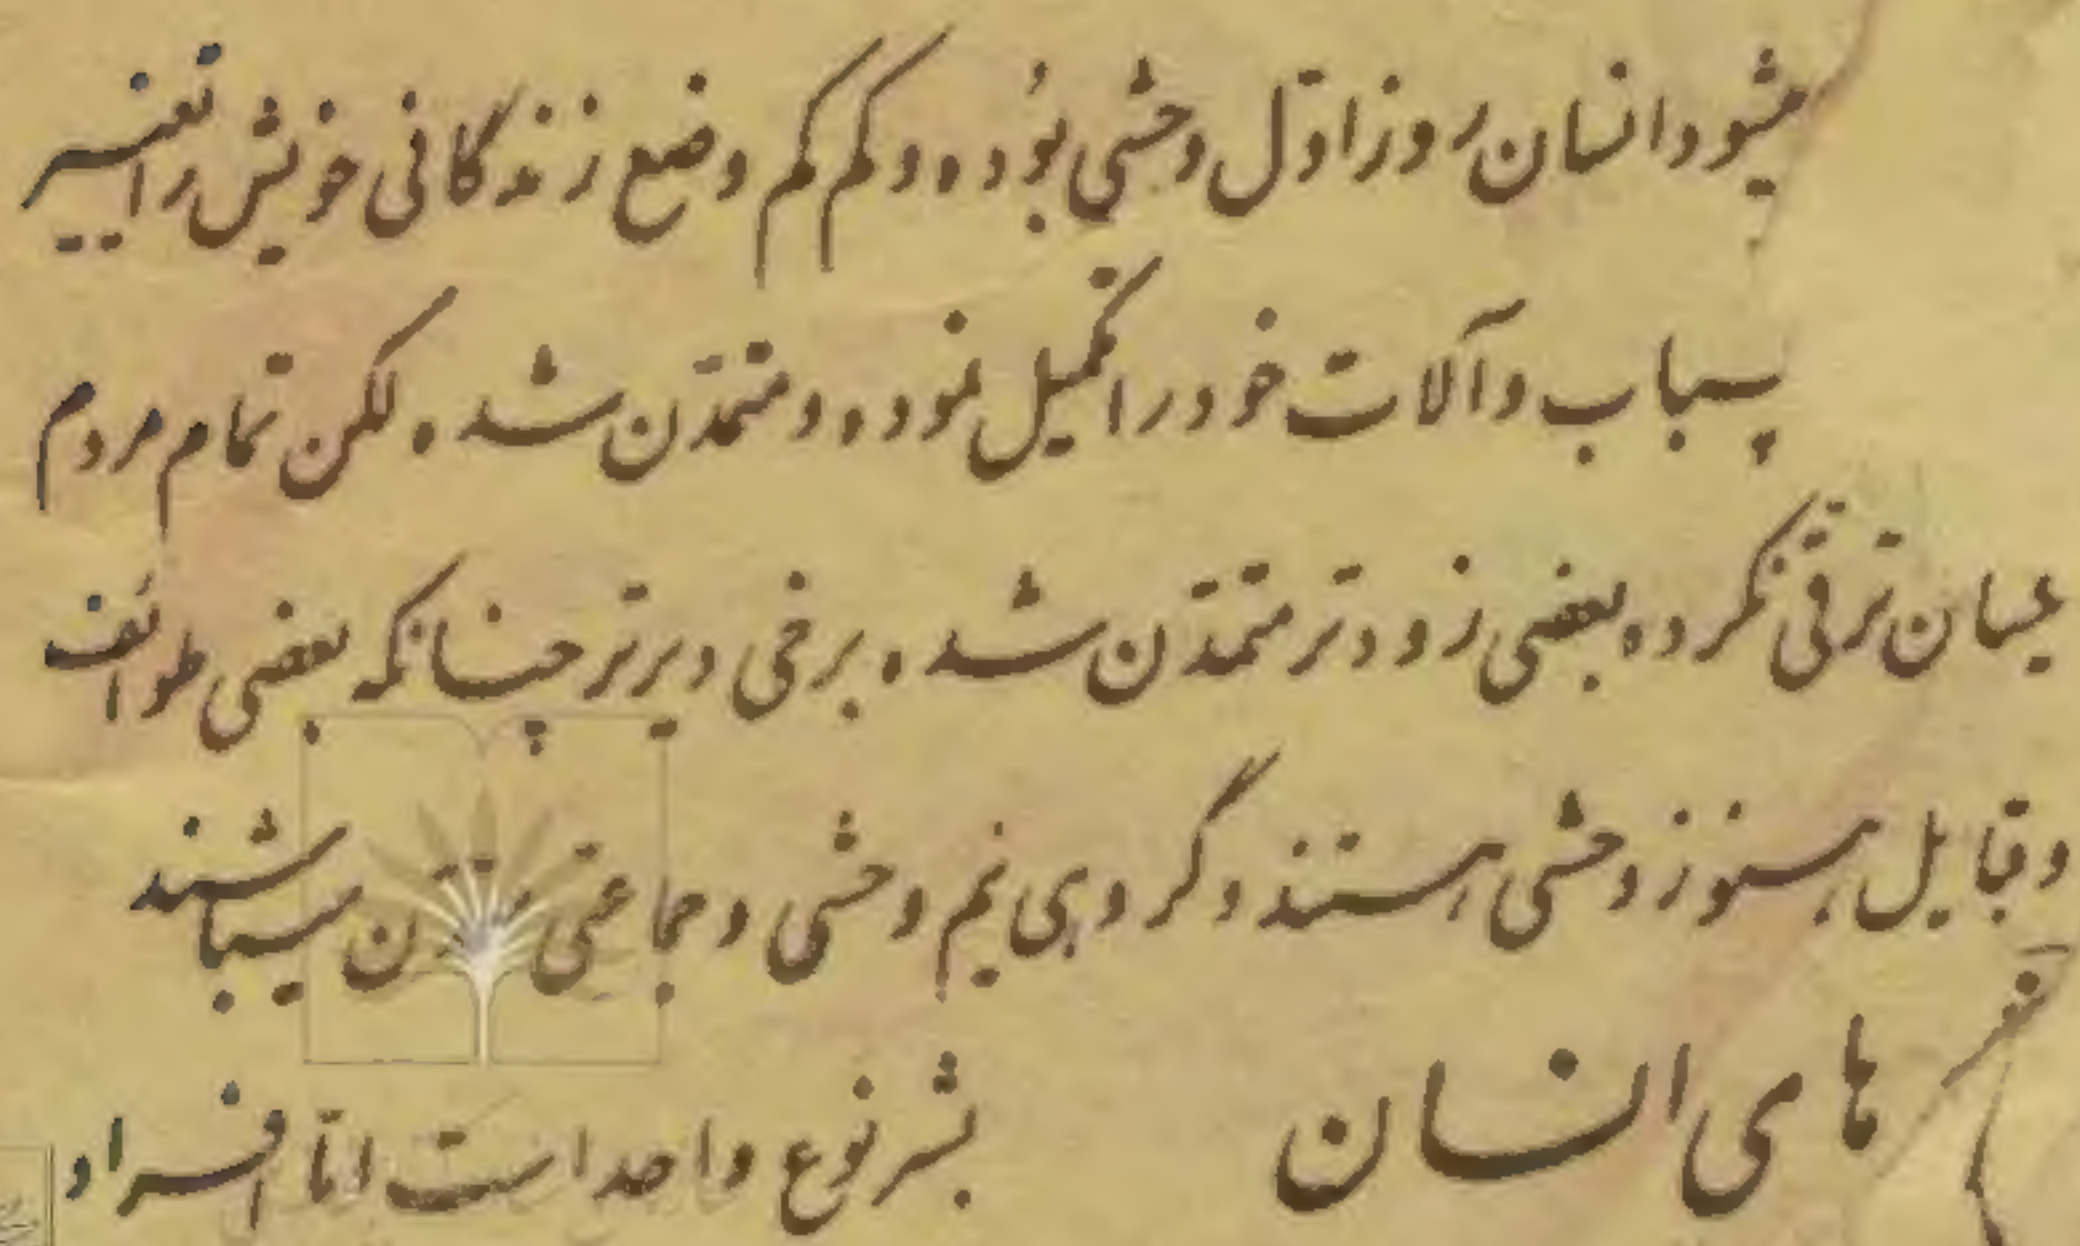 میشود انسان روز اول وحشی بوده و کم کم وضع زندگانی خویش را تغییر
سباب و آلات خود را تکمیل نموده و متمدّن شده لکن تمام مردم
یکسان ترقی نکرده بعضی زودتر متمدّن شده برخی دیرتر چنانکه بعضی طوائف
و قبایل هنوز وحشی هستند و گروهی نیم وحشی و جماعتی متمدن میباشند
های انسان
بشر نوع واحد است امّا افراد